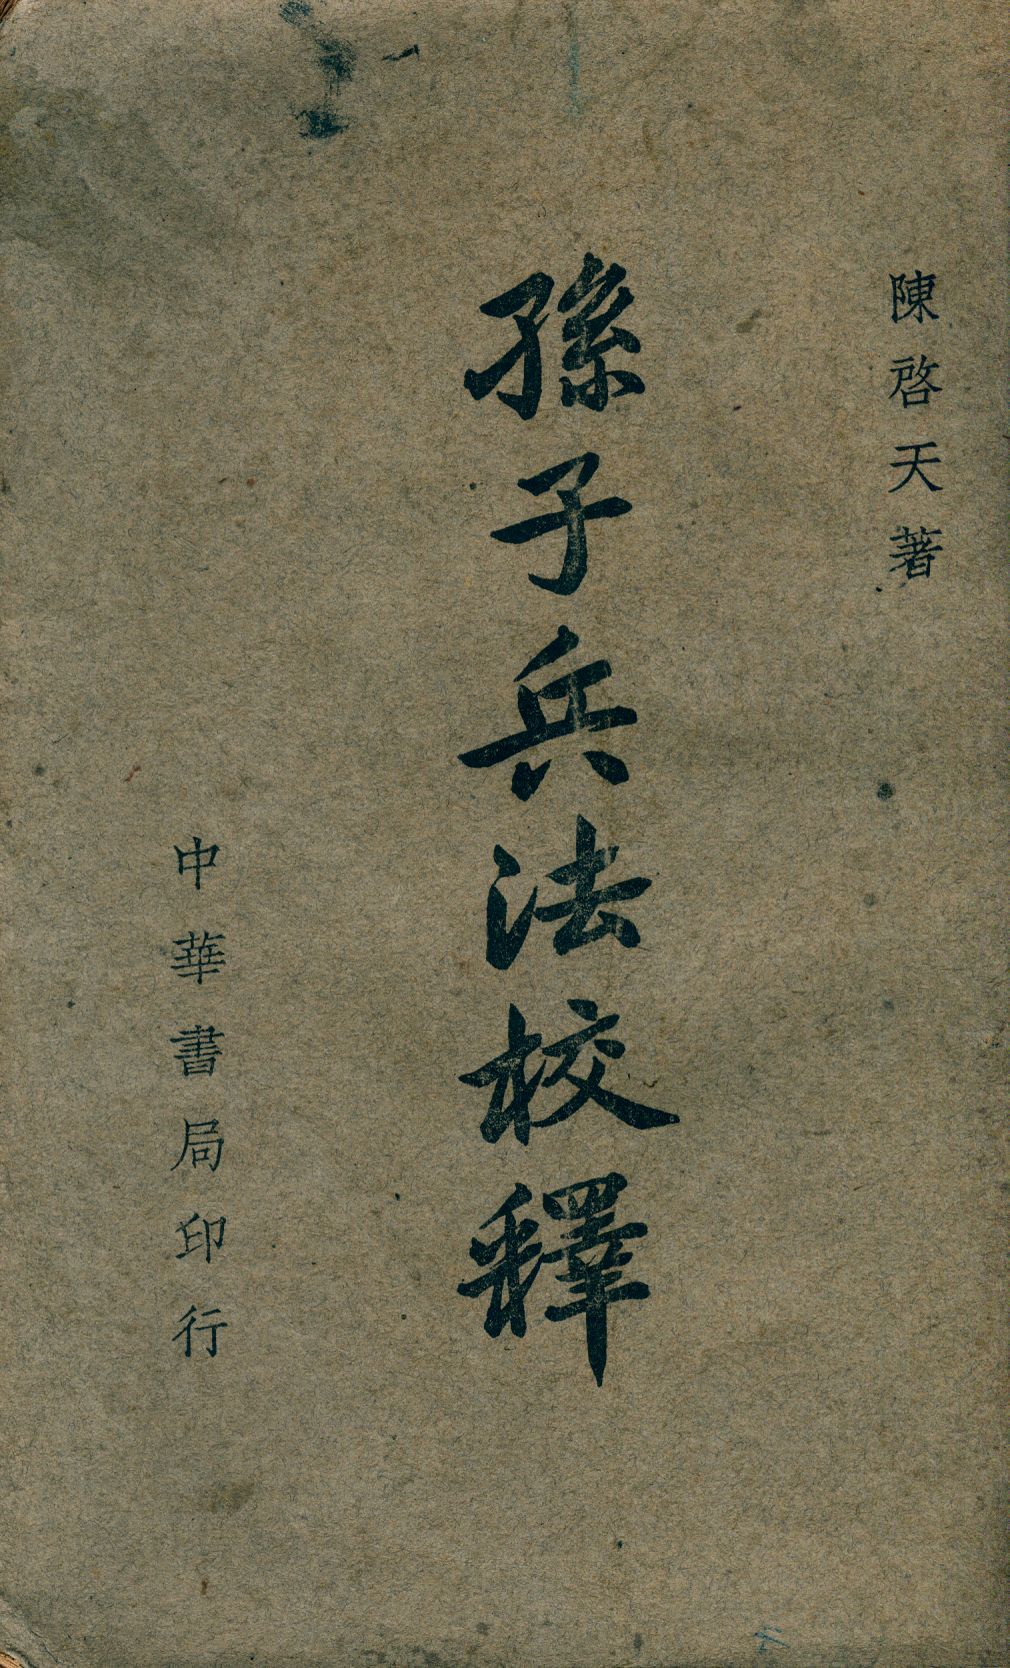 陳啓天著
孫子兵法校釋
中華書局印行